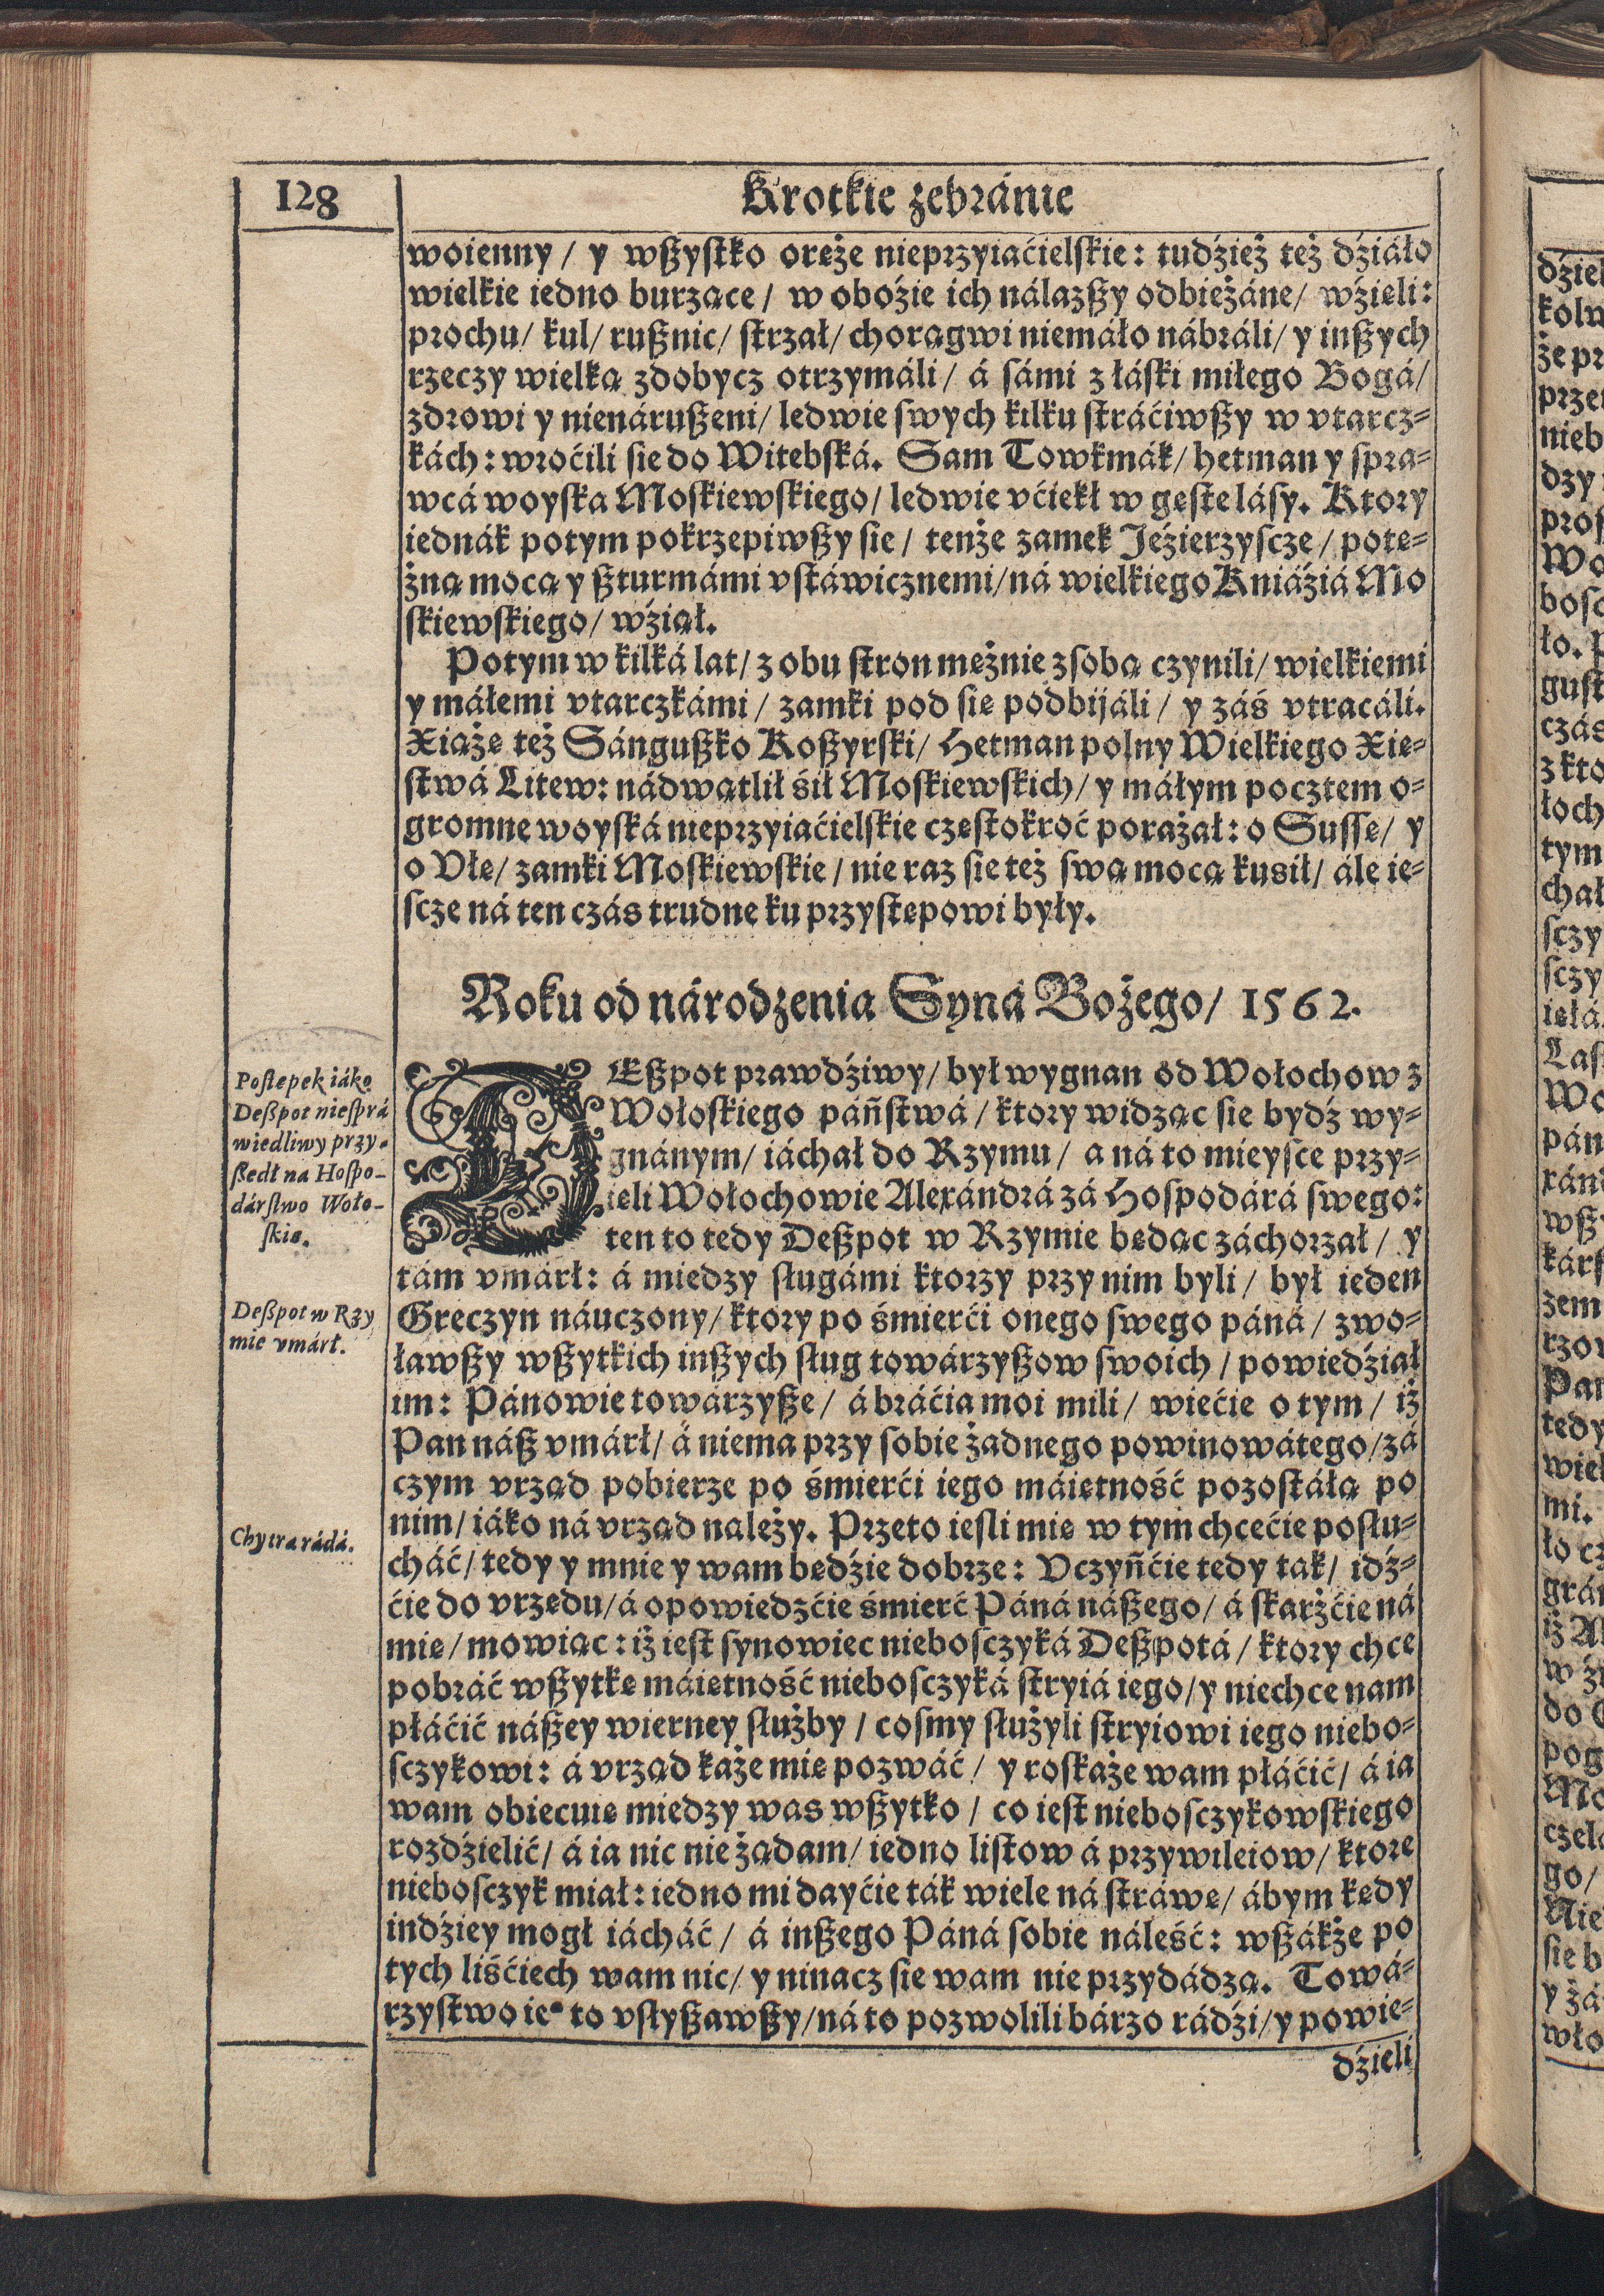 128
Krotkie zebránie
woienny / y wßystko oręże nieprzyiaćielskie: tudźież też dźiáło
wielkie iedno burzące / w oboźie ich nálazßy odbieżáne / wźięli:
prochu / kul / rußnic / strzał / chorągwi niemáło nábráli / y inßych
rzeczy wielką zdobycz otrzymáli / á sámi z łáski miłego Bogá /
zdrowi y nienárußeni / ledwie swych kilku stráćiwßy w vtarcz=
kách: wroćili się do Witebská. Sam Towkmák / hetman y spra=
wcá woyska Moskiewskiego / ledwie vćiekł w gęste lásy. Ktory
iednák potym pokrzepiwßy się / tenże zamek Jeźierzyscze / potę=
żną mocą y ßturmámi vstáwicznemi / ná wielkiego Kniáźiá Mo
skiewskiego / wźiął.
Potym w kilká lat / z obu stron mężnie z sobą czynili / wielkiemi
y máłemi vtarczkámi / zamki pod się podbijáli / y záś vtracáli.
Xiążę też Sángußko Koßyrski / Hetman polny Wielkiego Xię=
stwá Litew: nádwątlił śił Moskiewskich / y máłym pocztem o=
gromne woyská nieprzyiaćielskie częstokroć porażał: o Sussę / y
o Vłę / zamki Moskiewskie / nie raz się też swą mocą kusił / ále ie=
scze ná ten czás trudne ku przystępowi były.
Roku od národzenia Syná Bożego / 1562.
DEßpot prawdźiwy / był wygnan od Wołochow z
Wołoskiego páństwá / ktory widząc się bydź wy=
gnánym / iáchał do Rzymu / a ná to mieysce przy=
ięli Wołochowie Alexándrá zá Hospodárá swego:
ten to tedy Deßpot w Rzymie będąc záchorzał / y
tám vmárł: á między sługámi ktorzy przy nim byli / był ieden
Greczyn náuczony / ktory po śmierći onego swego páná / zwo=
ławßy wßytkich inßych sług towárzyßow swoich / powiedźiał
im: Pánowie towárzyße / á bráćia moi mili / wiećie o tym / iż
Pan náß vmárł / á niema przy sobie żadnego powinowátego / zá
czym vrząd pobierze po śmierći iego máiętność pozostáłą po
nim / iáko ná vrząd należy. Przeto iesli mię w tym chcećie poslu=
cháć / tedy y mnie y wam będźie dobrze: Vczyńćie tedy tak / idź=
ćie do vrzędu / á opowiedzćie śmierć Páná náßego / á skarżćie ná
mię / mowiąc: iż iest synowiec niebosczyká Deßpotá / ktory chce
pobráć wßytkę máiętność niebosczyká stryiá iego / y niechce nam
płáćić náßey wierney służby / cosmy służyli stryiowi iego niebo=
sczykowi: á vrząd każe mię pozwáć / y roskaże wam płáćić / á ia
wam obiecuię między was wßytko / co iest niebosczykowskiego
rozdźielić / á ia nic nie żądam / iedno listow á przywileiow / ktore
niebosczyk miał: iedno mi dayćie ták wiele ná stráwę / ábym kędy
indźiey mogł iácháć / á inßego Páná sobie náleść: wßákże po
tych liśćiech wam nic / y ninacz się wam nie przydádzą. Towá=
rzystwo ie° to vslyßawßy / ná to pozwolili bárzo rádźi / y powie=
dźieli
Postępek iáko
Deßpot niesprá
wiedliwy przy=
ßedł na Hospo-
dárstwo Woło-
skie.
Deßpot w Rzy
mie vmárł.
Chytra rádá.